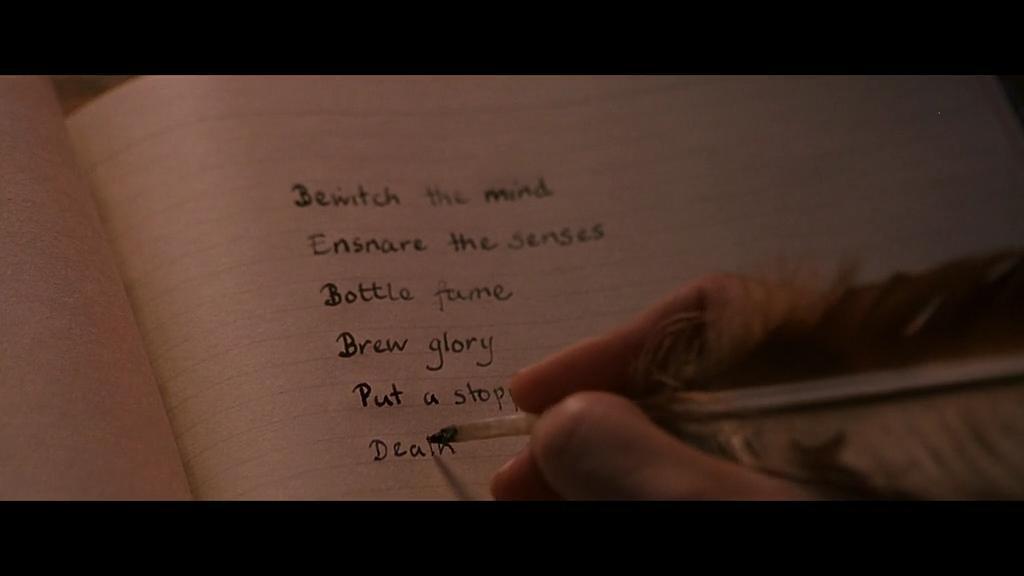 Bewitch the mind
Ensnare the senses
Bottle fame
Brew glory
Put a stopp
Death